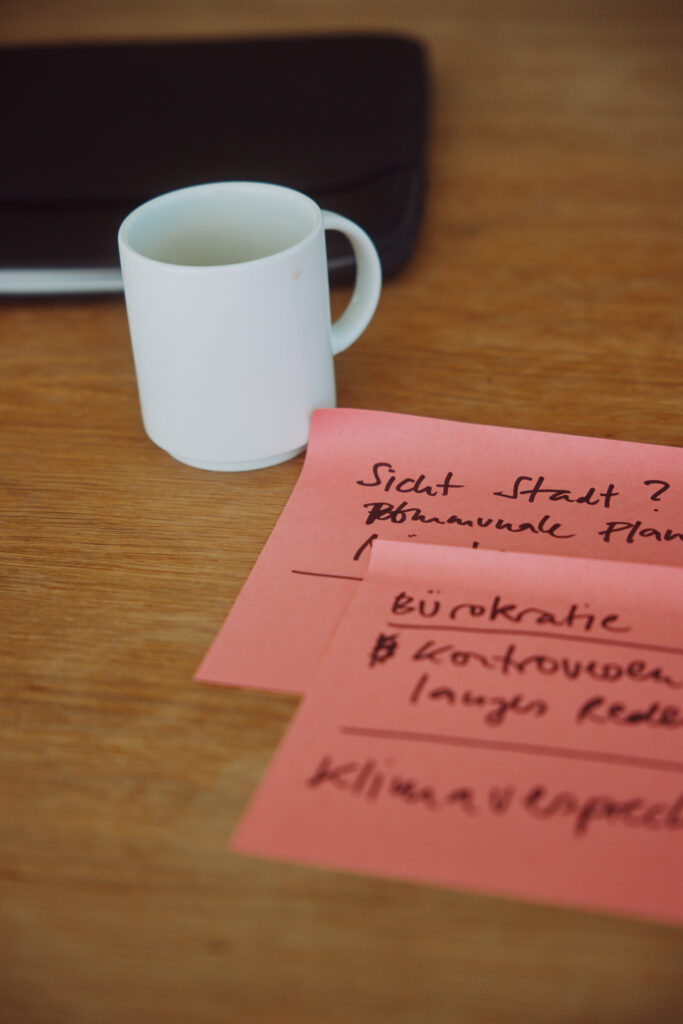 Sicht Stadt ?
Kommunale Plan
Bürokratie
Kontroversen
langes Rede
Klimaversprech